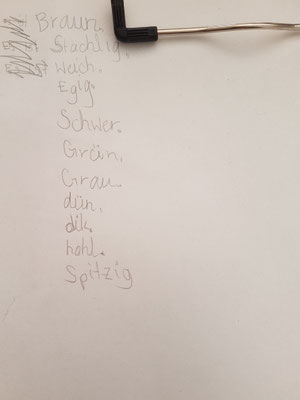 Braun.
Stachlig.
weich.
Egig.
Schwer.
Grün.
Grau
dün.
dik.
hohl.
Spitzig